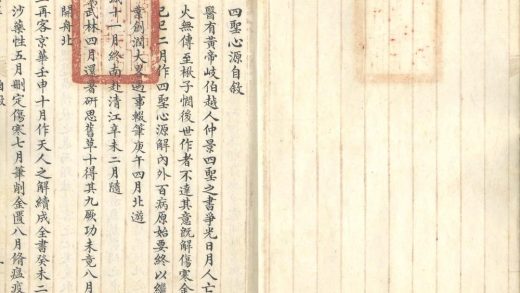 四聖心源自敘
醫有黃帝岐伯越人仲景四聖之書爭光日月人亡
火無傳至楸子憫後世作者不達其意既解傷寒金
己巳二月作四聖心源解內外百病原始要終以繼
業創潤大畧遇事輟筆庚午四月北遊
城十一月終南赴清江辛未二月隨
武林四月還署研思舊草十得其九厥功未竟八月
開舟北
上再客京華壬申十月作天人之解續成全書癸未二
沙藥性五月刪定傷寒七月筆削金匱八月脩瘟疫
自敘